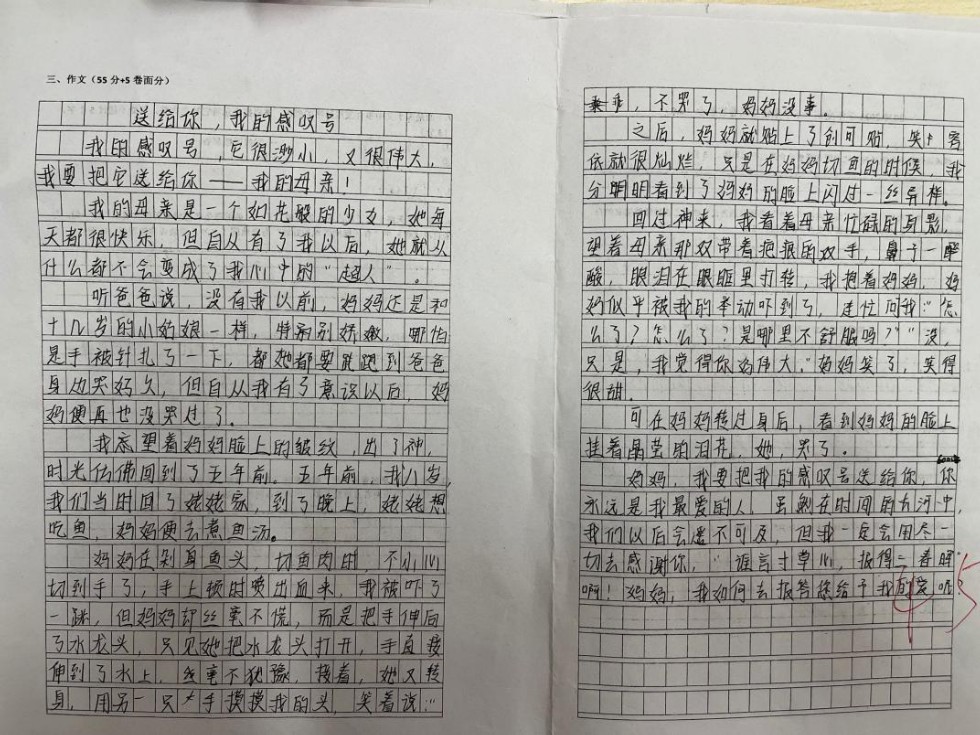 三、作文（55 分+5 卷面分）
送给你，我的感叹号
我的感叹号，它很渺小，又很伟大，
我要把它送给你——我的母亲！
我的母亲是一个如花般的少女，她每
天都很快乐，但自从有了我以后，她就从
什么都不会变成了我心中的“超人”。
听爸爸说，没有我以前，妈妈还是和
十几岁的小姑娘一样，特别娇嫩，哪怕
是手被针扎了一下，都她都要跑到爸爸
身边哭好久，但自从我有了意识以后，妈
妈便再也没哭过了。
我望着妈妈脸上的皱纹，出了神，
时光仿佛回到了五年前。五年前，我八岁，
我们当时回了姥姥家，到了晚上，姥姥想
吃鱼，妈妈便去煮鱼汤。
妈妈在剁鱼头，切鱼肉时，不小心
切到手了，手上顿时喷出血来，我被吓了
一跳，但妈妈却丝毫不慌，而是把手伸向
了水龙头，只见她把水龙头打开，手直接
伸到了水上，丝毫不犹豫，接着，她又转
身，用另一只手摸摸我的头，笑着说：“
乖乖，不哭了，妈妈没事。
之后，妈妈就贴上了创可贴，笑容
依就很灿烂，只是在妈妈切鱼的时候，我
分明明看到了妈妈的脸上闪过一丝异样。
回过神来，我看着母亲忙碌的身影，
望着母亲那双带着疤痕的双手，鼻子一
酸，眼泪在眼眶里打转，我抱着妈妈，妈
妈似乎被我的举动吓到了，连忙问我：“怎
么了？怎么了？是哪里不舒服吗？”“没，
只是，我觉得你好伟大。”妈妈笑了，笑得
很甜。
可在妈妈转过身后，看到妈妈的脸上
挂着晶莹的泪花，她，哭了。
妈妈，我要把我的感叹号送给你，你
永远是我最爱的人，虽然在时间的大河中，
我们以后会遥不可及，但我一定会用尽一
切去感谢你，“谁言寸草心，报得三春晖”
啊！妈妈，我如何去报答你给予我的爱呢